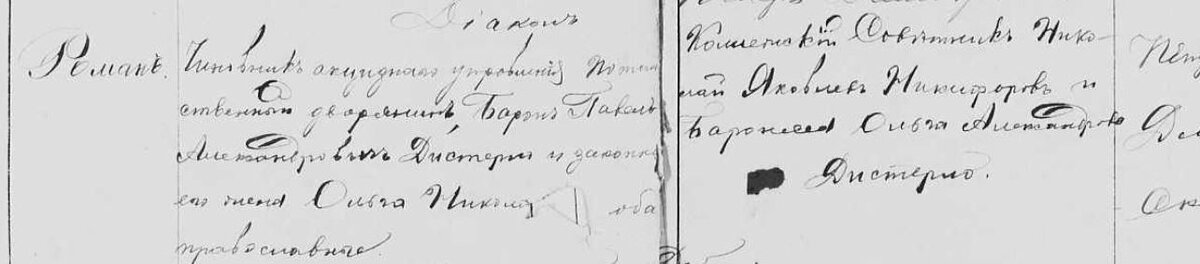 Діаконъ
Романъ.
Чиновникъ акцизнаго управленія Потом
ственный дворянинъ, Баронъ Павелъ
Александровичъ Дистерло и законная
его жена Ольга Никола оба
православные.
Коллежскій Совѣтникъ Нико-
лай Яковлевъ Никифоровъ и
Баронесса Ольга Александрова
Дистерло.